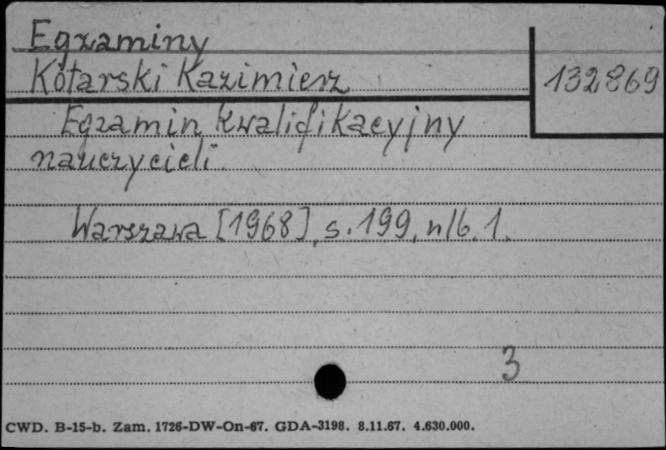 Egzaminy
Kotarski Kazimierz 132869
Egzamin kwalifikacyjny
nauczycieli.
Warszawa [1968], s. 199, nlb. 1.
3
CWD. B-15-b. Zam. 1726-DW-On-67. GDA-3198. 8.11.67. 4.630.000.